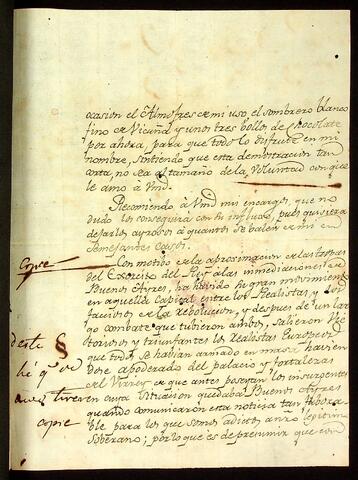 ocasion el Almofrex de mi uso, el sombrero blanco
fino de Vicuña y unos tres bollos de Chocolate
por ahora, para que todo lo disfrute en mi
nombre, sintiendo que esta demostracion tan
corta, no sea al tamaño de la Voluntad con que
le amo à Vmd.
Recomiendo à Vmd mis encargos, que no
dudo los conseguirá con su influxo, pues quisiera
dejarlos ayrosos à quantos se balen de mi en
semejantes casos.
Copie
Con motivo de la aproximacion de las tropas
del Exercito del Rey à las inmediaciones de
Buenos Ayres, ha havido un gran movimiento
en aquella Capital entre los Realistas y los
faccios de la revolucion, y despues de un lar
go combate que tubieron ambos, salieron Vic
toriosos y triunfantes los Realistas Europeos
que todos se havian armado en masa, havien
dose apoderado del palacio y fortalezas
del Virrey de que antes poseyan los insurgentes
en cuya situacion quedaba Buenos Ayres
quando comunicaron esta noticia tan favora
ble para los que somos adictos a nro legitimo
Soberano; por lo que es de presumir que con
deste §
hê qe
tiver
copie